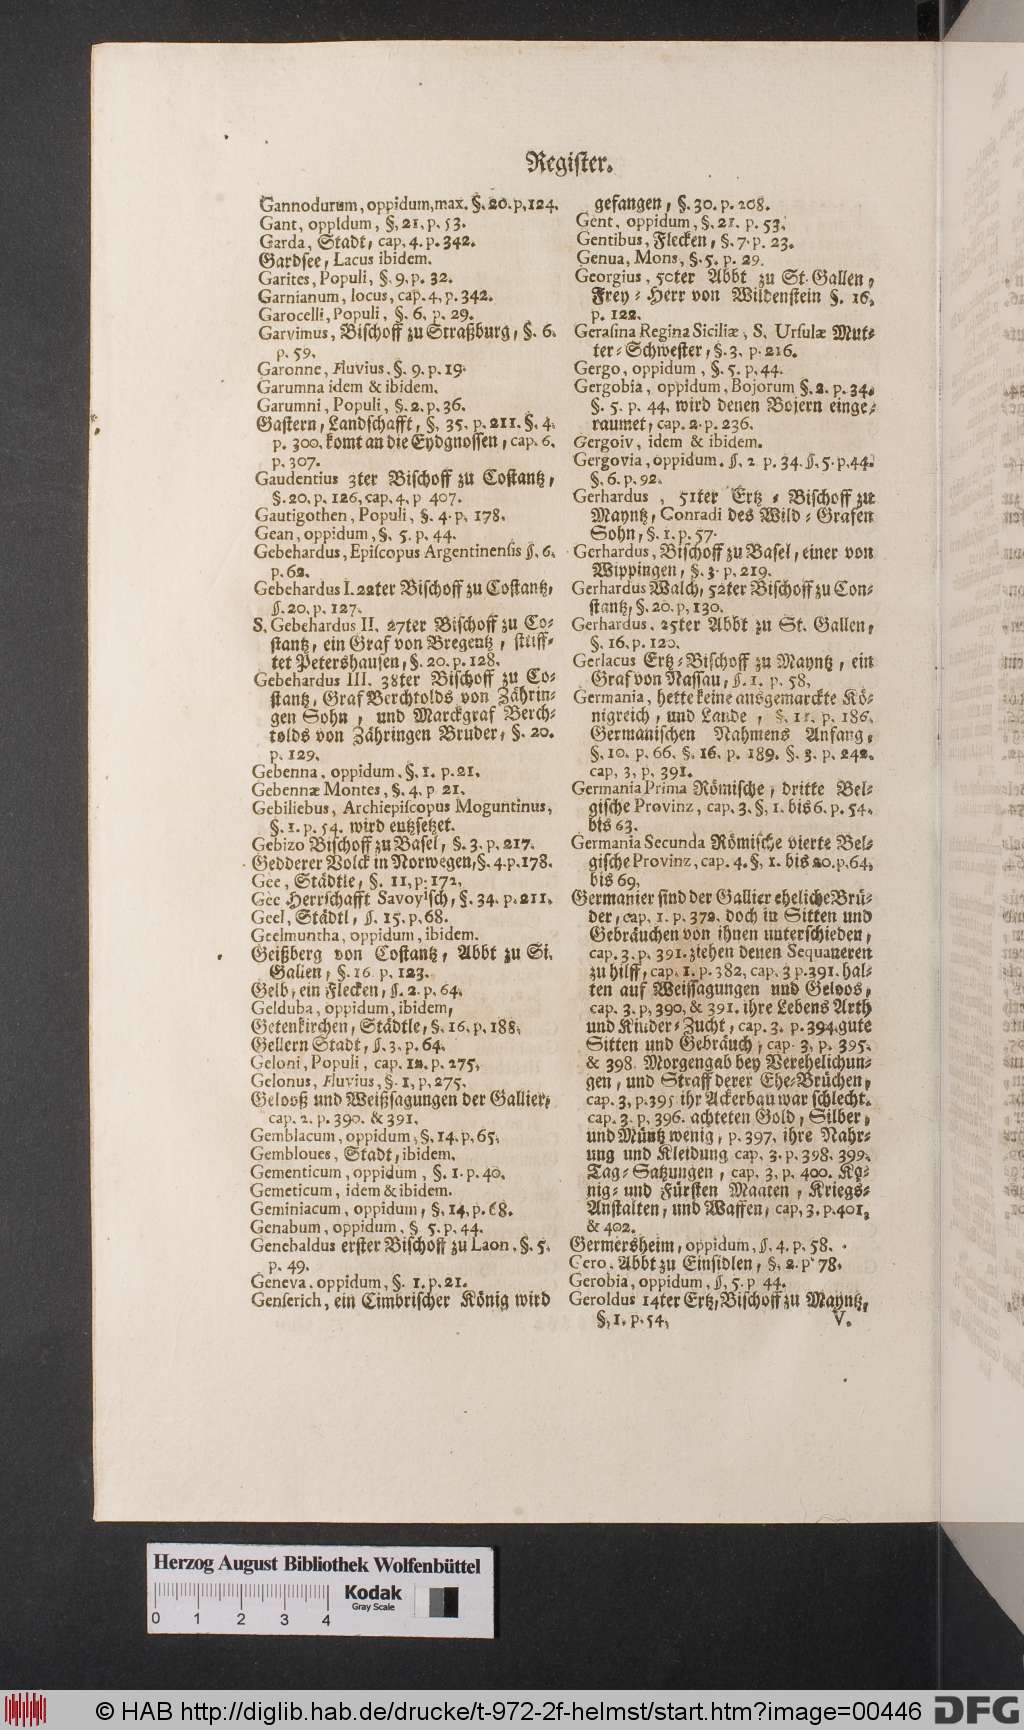 Regiſter.
Gannodurum, oppidum, max. §. 20. p. 124.
Gant, oppidum, §, 21, p. 53.
Garda, Stadt, cap. 4. p. 342.
Gardſee, Lacus ibidem.
Garites, Populi, §. 9, p. 32.
Garnianum, locus, cap. 4, p. 342.
Garocelli, Populi, §. 6. p. 29.
Garvimus, Biſchoff zu Straßburg, §. 6.
p. 59.
Garonne, Fluvius. §. 9. p. 19.
Garumna idem & ibidem.
Garumni, Populi, §. 2. p. 36.
Gaſtern, Landſchafft, §, 35. p. 211. §. 4.
p. 300. komt an die Eydgnoſſen, cap. 6.
p. 307.
Gaudentius 3ter Biſchoff zu Coſtantz,
§. 20. p. 126, cap. 4, p 407.
Gautigothen, Populi, §. 4. p. 178.
Gean, oppidum, §. 5. p. 44.
Gebehardus, Epiſcopus Argentinenſis ſ. 6.
p. 62.
Gebehardus I. 22ter Biſchoff zu Coſtantz,
ſ. 20. p. 127.
S. Gebehardus II. 27ter Biſchoff zu Co-
ſtantz, ein Graf von Bregentz, ſtiff-
tet Petershauſen, §. 20. p. 128.
Gebehardus III. 38ter Biſchoff zu Co-
ſtantz, Graf Berchtolds von Zährin-
gen Sohn, und Marckgraf Berch-
tolds von Zähringen Bruder, §. 20.
p. 129.
Gebenna, oppidum, §. 1. p. 21.
Gebennæ Montes, §. 4. p 21.
Gebiliebus, Archiepiſcopus Moguntinus,
§. 1. p. 54. wird eutzſetzet.
Gebizo Biſchoff zu Baſel, §. 3. p. 217.
Gedderer Volck in Norwegen, §. 4. p. 178.
Gee, Städtle, §. 11, p. 172,
Gee Herrſchafft Savoyiſch, §. 34. p. 211.
Geel, Städtl, ſ. 15. p. 68.
Geelmuntha, oppidum, ibidem.
Geißberg von Coſtantz, Abbt zu St.
Gallen, §. 16. p. 123.
Gelb, ein Flecken, ſ. 2. p. 64.
Gelduba, oppidum, ibidem,
Getenkirchen, Städtle, §. 16. p. 188.
Gellern Stadt, ſ. 3. p. 64.
Geloni, Populi, cap. 12. p. 275,
Gelonus, Fluvius, §. 1, p, 275.
Gelooß und Weißſagungen der Gallier,
cap. 2. p. 390. & 391.
Gemblacum, oppidum, §. 14. p, 65.
Gembloues, Stadt, ibidem.
Gementicum, oppidum, §. 1. p. 40.
Gemeticum, idem & ibidem.
Geminiacum, oppidum, §, 14, p. 68.
Genabum, oppidum, § 5. p. 44.
Genebaldus erſter Biſchoff zu Laon. §. 5.
p. 49.
Geneva, oppidum, §. 1. p. 21.
Genſerich, ein Cimbriſcher König wird
gefangen, §. 30. p. 208.
Gent, oppidum, §. 21. p. 53.
Gentibus, Flecken, §. 7. p. 23.
Genua, Mons, §. 5. p. 29.
Georgius, 50ter Abbt zu St. Gallen,
Frey-Herr von Wildenſtein §. 16.
p. 122.
Geraſina Regina Siciliæ, S. Urſulæ Mut-
ter-Schweſter, §. 3. p. 216.
Gergo, oppidum, §. 5. p, 44.
Gergobia, oppidum, Bojorum §. 2. p. 34.
§. 5. p. 44. wird denen Bojern einge-
raumet, cap. 2. p. 236.
Gergoiv, idem & ibidem.
Gergovia, oppidum. ſ. 2 p. 34. ſ. 5. p. 44.
§. 6. p. 92.
Gerhardus, 51ter Ertz-Biſchoff zu
Mayntz, Conradi des Wild-Grafen
Sohn, §. 1. p. 57.
Gerhardus, Biſchoff zu Baſel, einer von
Wippingen, §. 3. p, 219.
Gerhardus Walch, 52ter Biſchoff zu Con-
ſtantz, §. 20. p, 130.
Gerhardus. 25ter Abbt zu St. Gallen,
§. 16. p. 120.
Gerlacus Ertz-Biſchoff zu Mayntz, ein
Graf von Naſſau, ſ. 1. p. 58,
Germania, hette keine ausgemarckte Kö-
nigreich, und Lande, §. 11. p. 186.
Germaniſchen Nahmens Anfang,
§. 10. p. 66. §. 16. p. 189. §. 3. p. 242.
cap, 3, p, 391.
Germania Prima Römiſche, dritte Bel-
giſche Provinz, cap. 3. §, 1. bis 6. p. 54.
bis 63.
Germania Secunda Römiſche vierte Bel-
giſche Provinz, cap. 4. §, 1. bis 20. p. 64,
bis 69,
Germanier ſind der Gallier eheliche Brü-
der, cap, 1. p. 372. doch in Sitten und
Gebräuchen von ihnen unterſchieden,
cap. 3. p. 391. ziehen denen Sequaneren
zu hilff, cap. 1. p. 382, cap. 3 p. 391. hal-
ten auf Weiſſagungen und Geloos,
cap. 3. p, 390, & 391. ihre Lebens Arth
und Kinder-Zucht, cap. 3. p. 394. gute
Sitten und Gebräuch, cap. 3, p. 395.
& 398. Morgengab bey Verehelichun-
gen, und Straff derer Ehe-Brüchen,
cap. 3, p. 395 ihr Ackerbau war ſchlecht.
cap. 3. p, 396. achteten Gold, Silber,
und Müntz wenig, p. 397. ihre Nahr-
ung und Kleidung cap. 3. p. 398. 399.
Tag-Satzungen, cap. 3, p, 400. Kö-
nig- und Fürſten Maaten, Kriegs-
Anſtalten, und Waffen, cap, 3. p. 401,
& 402.
Germersheim, oppidum, ſ. 4. p. 58.
Gero. Abbt zu Einſidlen, §, 2. p. 78.
Gerobia, oppidum, ſ, 5. p 44.
Geroldus 14ter Ertz, Biſchoff zu Mayntz,
§, 1. p. 54,
V.
Herzog August Bibliothek Wolfenbüttel
0 1 2 3 4
Kodak
Gray Scale
© HAB http://diglib.hab.de/drucke/t-972-2f-helmst/start.htm?image=00446
DFG